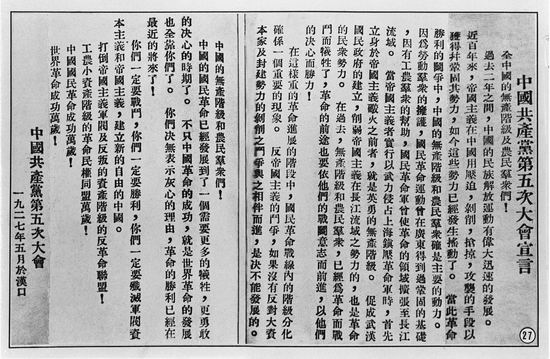 中國共產黨第五次大會宣言
全中國的無產階級及農民羣衆們！
過去二年之間，中國的民族解放運動有偉大迅速的發展。
近百年來，帝國主義在中國用壓迫，剝削，搶掠，攻襲的手段以
獲得幷鞏固其勢力，如今這些勢力已經發生搖動了。　當此革命
勝利的鬬爭中，中國的無產階級和農民羣衆確是主要的動力。
因爲勞動羣衆的擁護，國民革命運動曾在廣東得到過鞏固的基礎
，因有工農羣衆的幫助，國民革命軍曾使革命的領域擴張至長江
流域。　當帝國主義者實行以武力侵占上海鎭壓革命軍時，首先
立身於帝國主義礮火之前者，就是英勇的無產階級。　促成武漢
國民政府的建立，削弱帝國主義在長江流域之勢力的，也是革命
的民衆勢力。　在過去，無產階級和農民羣衆，已經爲革命而戰
鬬而犧牲了，革命的前途也要依他們的戰鬬意志而前進，以他們
的決心而勝力！
在這樣重的革命進展的階段中，國民革命戰線內的階級分化
確係一個重要的現象。　反帝國主義的鬬爭，如果沒有反對大資
本家及封建勢力的剝削之鬬爭與之相伴而進，是決不能發展的。
中國的無產階級和農民羣衆們！
中國的國民革命已經發展到了一個需要更多的犧牲，更勇敢
的決心的時期了。　不只中國革命的成功，就是世界革命的發展
也全靠你們了。　你們決無表示灰心的理由，革命的勝利已經在
最近的將來了！
你們一定要戰鬥，你們一定要勝利，你們一定要殲滅軍閥資
本主義和帝國主義，建立新的自由的中國。
打倒帝國主義軍閥及反叛的資產階級的反革命聯盟！
工農小資產階級的革命民權同盟萬歲！
中國國民革命成功萬歲！
世界革命成功萬歲！
中國共產黨第五次大會
一九二七年五月於漢口
27